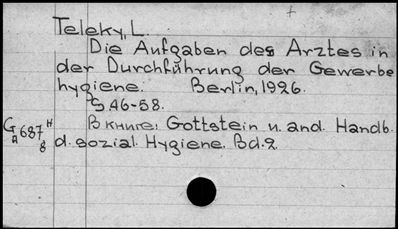 Teleky, L.
Die Aufgaben des Arztes in
der Durchführung der Gewerbe
hygiene. Berlin, 1926.
S 46-58.
В книге: Gottstein u. and. Handb.
d. sozial. Hygiene. Bd. 2.
G 687 H
A 8